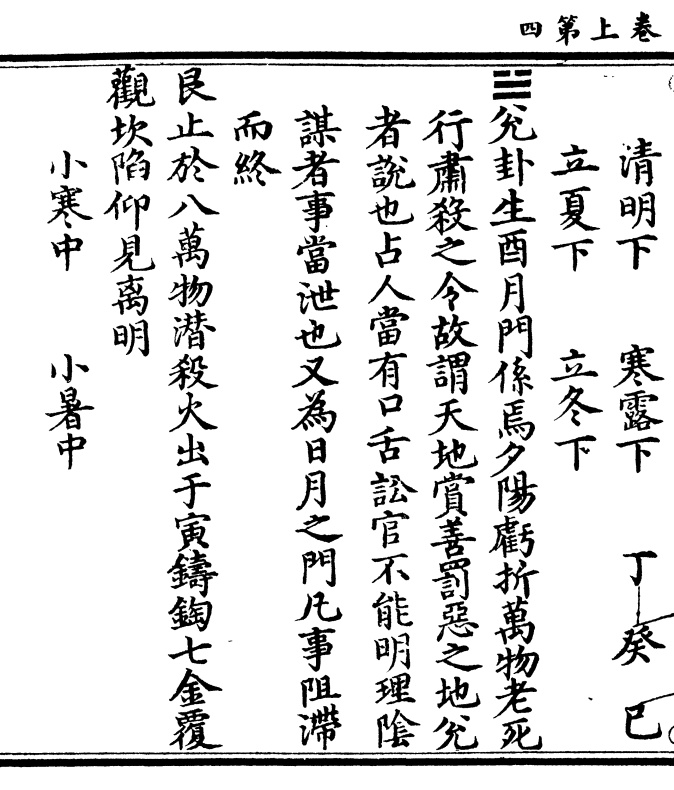 卷上第四
清明下 寒露下 丁癸巳
立夏下 立冬下
☱兊卦生酉月門係焉夕陽虧折萬物老死
行肅殺之令故謂天地賞善罰惡之地兊
者説也占人當有口舌訟官不能明理隂
謀者事當泄也又為日月之門凡事阻滯
而終
艮止於八萬物潜殺火出于寅鑄鋾七金覆
觀坎陷仰見离明
小寒中 小暑中